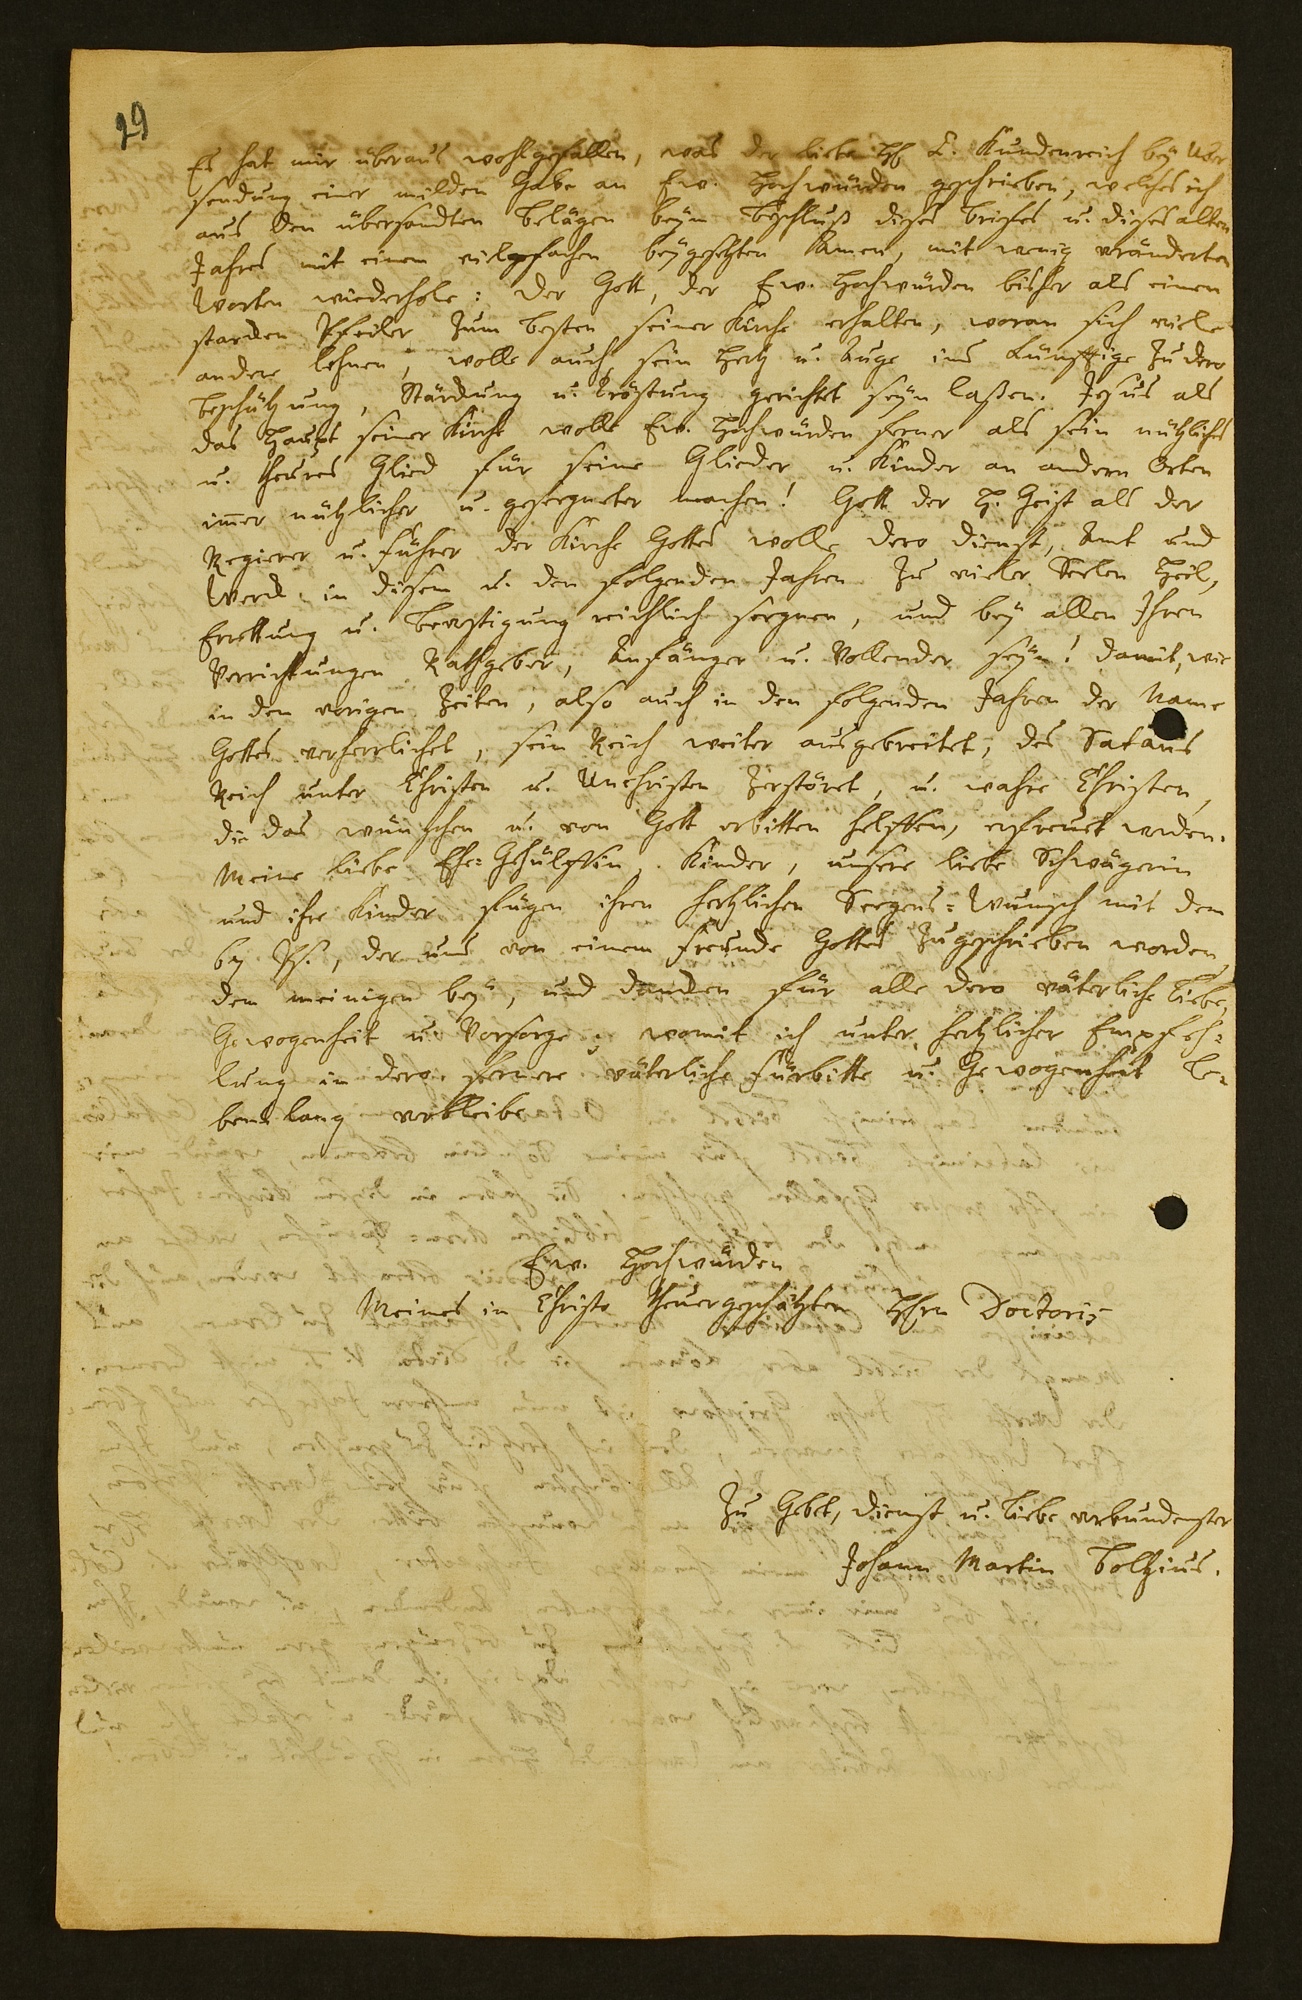 29
Es hat mir überaus wohlgefallen, was der liebe H. Kundenreich bey Uber
sendung einer milden Gabe an Ew. Hochwürden geschrieben, welches ich
aus den übersandten Belägen beym Beschluß dieses Briefes u. dieses alten
Jahres mit einem vielgefachen beygesetzten Amen, mit wenig veränderten
Worten wiederhole: Der Gott, der Ew. Hochwürden bisher als einen
starcken Pfeiler zum besten seiner Kirche erhalten, woran sich viele
andere lehnen, wolle auch sein Hertz u. Auge ins künfftige zu dero
Beschützung, Stärckung u. Tröstung gerichtet seyn laßen. Jesus als
das Haupt seiner Kirche wolle Ew. Hochwürden ferner als sein nützliches
u. theures Glied für seine Glieder u. Kinder an andern Orten
immer nützlicher u. gesegneter machen! Gott der H. Geist als der
Regierer u. Führer der Kirche Gottes wolle dero Dienst, Amt und
Werck in diesem u. den folgenden Jahren zu vieler Seelen Heil,
Errettung u. Bevestigung reichlich seegnen, und bey allen Ihren
Verrichtungen Rathgeber, Anfänger u. Vollender seyn! damit, wie
in den vorigen Zeiten, also auch in den folgenden Jahren der Name
Gottes verherrlichet, sein Reich weiter ausgebreitet, des Satans
Reich unter Christen u. Unchristen zerstöret, u. wahre Christen,
die das wünschen u. von Gott erbitten helffen, erfreuet werden.
Meine liebe Ehe-Gehülffin, Kinder, unsere liebe Schwägerin
und ihre Kinder fügen ihren hertzlichen Seegens-Wunsch mit dem
Ps., der uns von einem Freunde Gottes zugeschrieben worden,
dem meinigen bey, und dancken für alle dero väterliche Liebe,
Gewogenheit u. Vorsorge; womit ich unter hertzlicher Empfeh-
lung in dero fernere väterliche Fürbitte u. Gewogenheit Le-
bens lang verbleibe
Ew. Hochwürden
Meines in Christo theuergeschätzten Hhrn Doctoris
Zu Gebet, Dienst u. Liebe verbundenster
Johann Martin Boltzius.